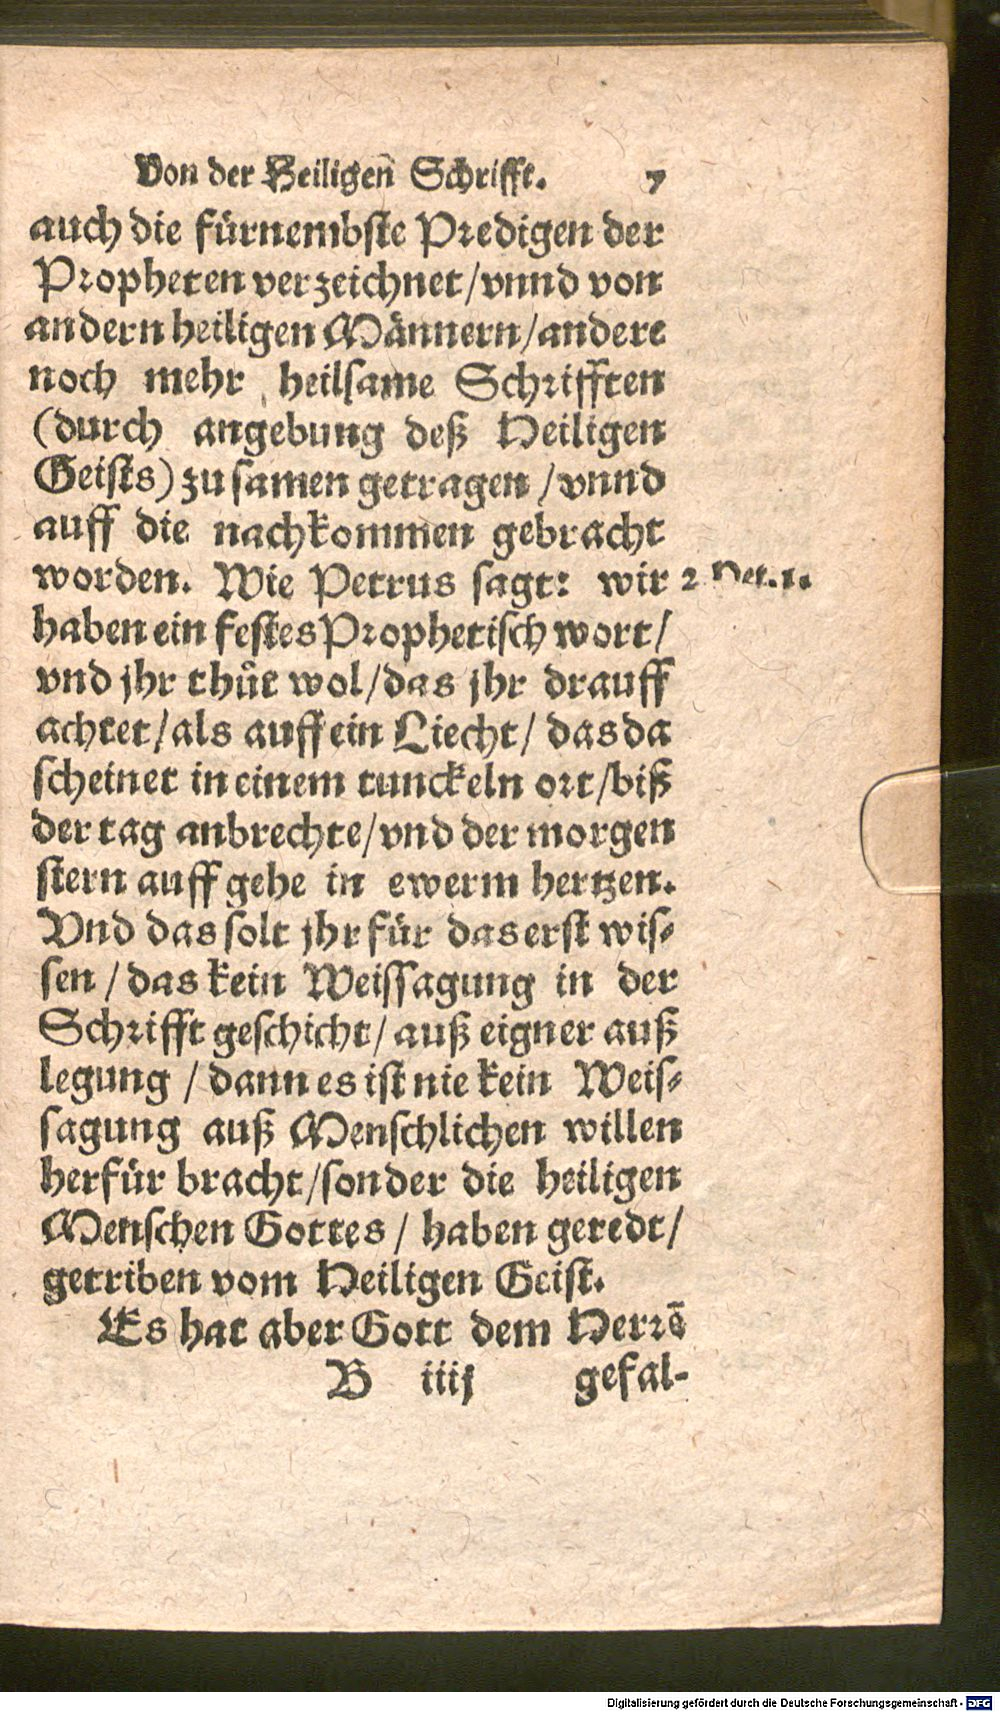 Von der Heiligen̄ Schrifft. 7
auch die fürnembste Predigen der
Propheten verzeichnet/vnnd von
andern heiligen Männern/andere
noch mehr heilsame Schrifften
(durch angebung deß Heiligen
Geists) zusamen getragen/vnnd
auff die nachkommen gebracht
worden. Wie Petrus sagt: wir
2 Pet. 1.
haben ein festes Prophetisch wort/
vnd jhr thůt wol/das jhr drauff
achtet/als auff ein Liecht/das da
scheinet in einem tunckeln ort/biß
der tag anbrechte/vnd der morgen
stern auff gehe in ewerm hertzen.
Vnd das solt jhr für das erst wis-
sen/das kein Weissagung in der
Schrifft geschicht/auß eigner auß
legung/dann es ist nie kein Weis-
sagung auß Menschlichen willen
herfür bracht/sonder die heiligen
Menschen Gottes/haben geredt/
getriben vom Heiligen Geist.
Es hat aber Gott dem Herrē
B iiij gefal-
Digitalisierung gefördert durch die Deutsche Forschungsgemeinschaft - DFG